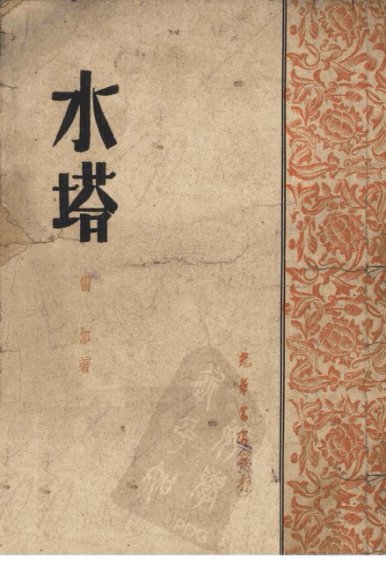 水塔
雷加著
光華書店發行
PDG